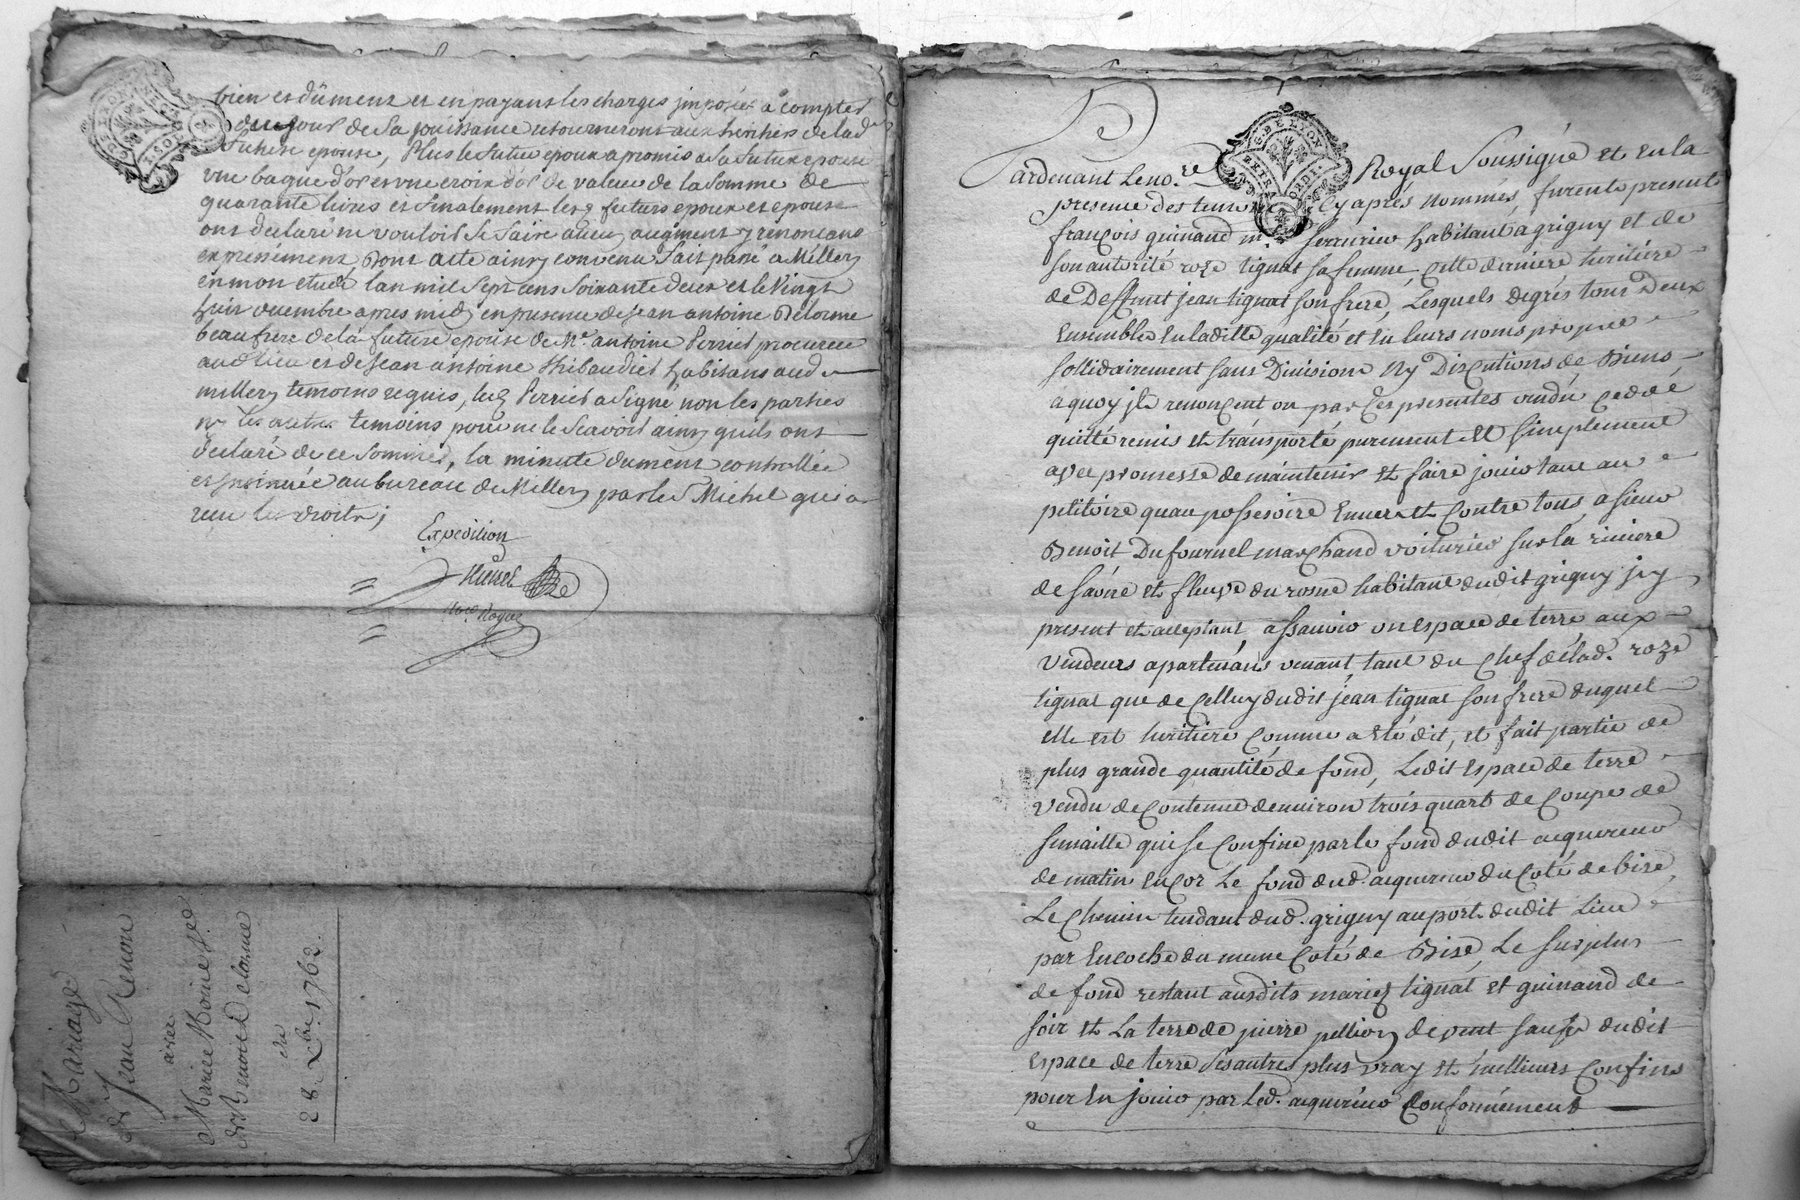 bien et dûment et en payant les charges jmposées à compter
du jour de sa jouissance retourneront aux heritiers de lad.e
future epouse, Plus le futur epoux a promis a sa future epouse
une bague d'or et une croix d'or de valeur de la somme de
quarante livres et finalement lesd futurs epoux et epouse
ont declaré ne vouloir se faire aucun augment y renoncant
expressément, Dont acte ainsy convenu fait passé a Millery
en mon etude lan mil sept cens soixante deux et le vingt
huit decembre apres midy en presence de jean antoine Delorme
beaufrere de la future epouse de Me antoine Perriet procureur
aud lieu et de jean antoine Thibaudier habitans aud
millery temoins requis, led Perriet a signé non les parties
ny les autres temoins pour ne le scavoir ainsy quils ont
declaré de ce sommés, la minute dument controllée
et jnsinuée au bureau de Millery par le Sr Michel qui a
recu les droits;
Expedition
nore Royal
Mariage
de Jean Renon
avec
Marie Moine
du
28 Xbre 1762.
G. DE LYON
RETRA ORDIN
Pardevant Leno.re Royal Soussigné et en la
presence des temoins Cy aprés nommés, furent present
françois guinand m.e serrurier habitant a grigny et de
son autorité roze tignat sa femme, cette derniere heritiere
de Deffunt jean tignat son frere, Lesquels degrés tous Deux
Ensemble En laditte qualité et En leurs noms propre
sollidairement sans Division Ny Discutions de Biens
a quoy jls renoncent on par Ces presentes vendû Ceddé
quitté remis et transporté purement et simplement
avec promesse de maintenir et faire jouir tant au
petitoire quau possesoire Enver et Contre tous, a sieur
Benoit Dufournel marchand voiturier sur la riviere
de saone et fleuve du rosne habitant dudit grigny jcy
present et acceptant, assavoir un espace de terre aux
vendeurs apartenans venant tant du Chef delad. roze
tignat que de Celluy dudit jean tignat son frere duquel
elle est heritiere Comme a eté dit, et fait partie de
plus grande quantité de fond, Ledit espace de terre
vendu de Contenue denviron trois quart de Coupe de
semaille qui se Confine par le fond dudit acquereur
de matin Encor Le fond dud. acquereur du Coté de bise,
Le Chemin tendant dud. grigny au port dudit Lieu
par Encoche du meme Coté de Bise, Le surplus
de fond restant ausdits mariez tignat et guinand de
soir et La terre de pierre pellion de vent sauf dudit
Espace de terre ses autres plus vray et meilleurs Confins
pour En jouir par Led. acquereur Conformement